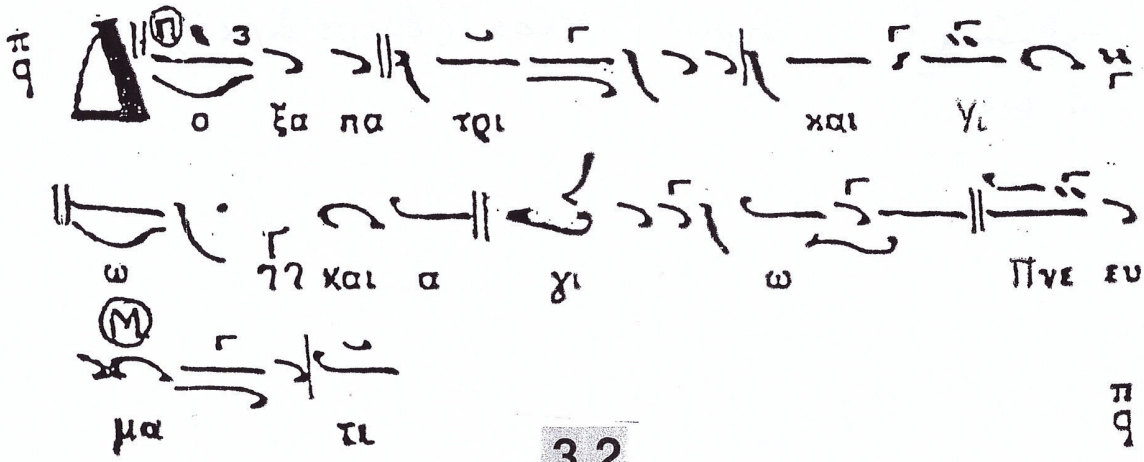 π
q Δο ξα πα τρι και Υι
ω και α γι ω Πνε ευ
μα τι π
q
3.2